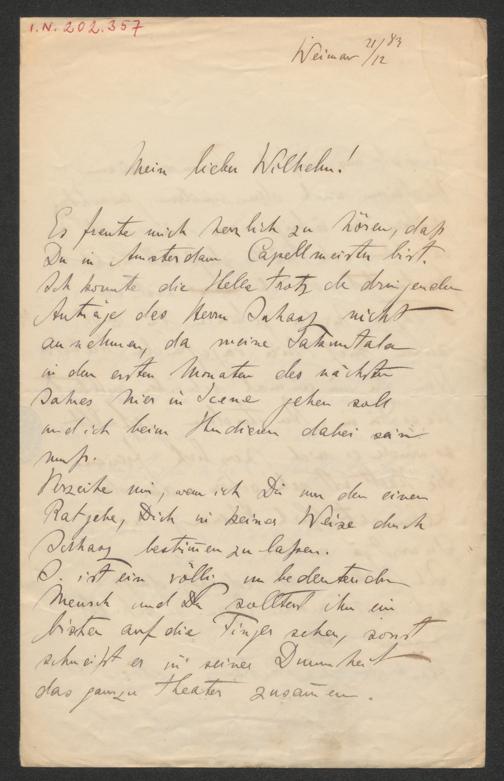 I.N. 202.357
Weimar 21/12 83
Mein lieber Wilhelm!
Es freute mich herzlich zu hören, daß
Du in Amsterdam Capellmeister bist.
Ich konnte die Stelle trotz der dringenden
Anträge des Herrn nicht
annehmen, da meine Sakuntala
in den ersten Monaten des nächsten
Jahres hier in Scene gehen soll
und ich beim Studieren dabei sein
muß.
Verzeihe mir, wenn ich Dir nur den einen
Rat gebe, Dich in keiner Weise durch
bestim̅en zu laßen.
S. ist ein völlig unbedeutender
Mensch und Du solltest ihm ein
bischen auf die Finger sehen, sonst
schmeißt er in seiner Dummheit
das ganze Theater zusam̅en.